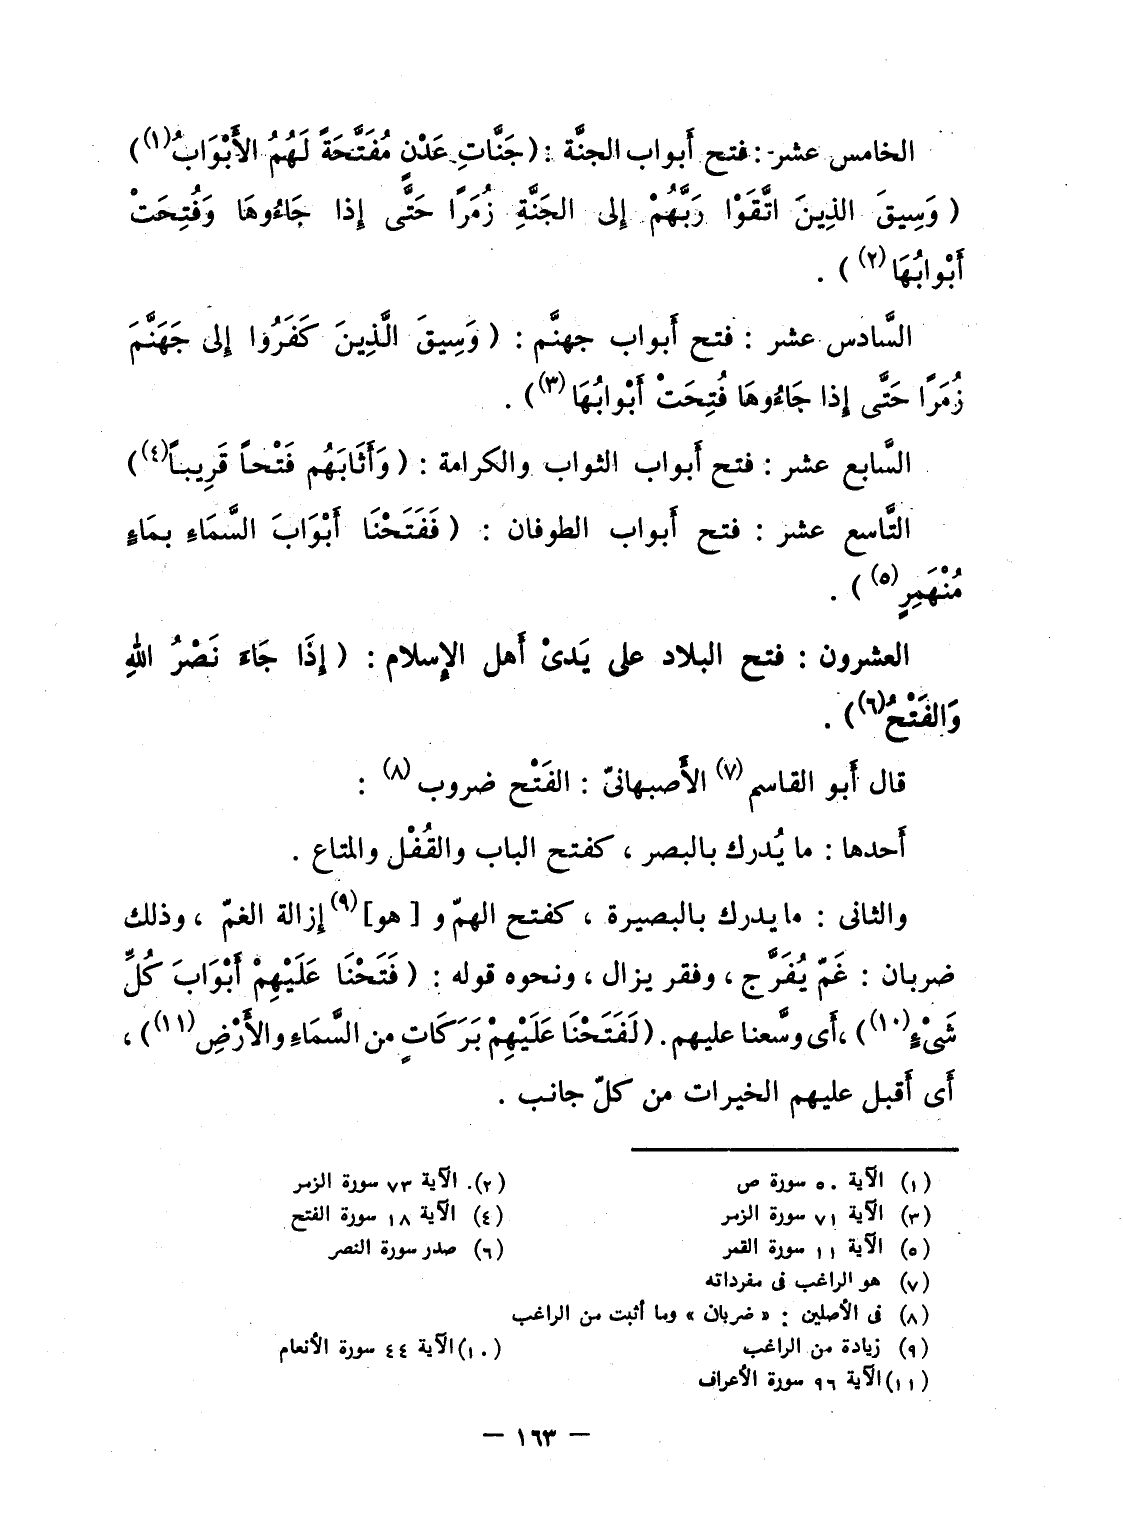 الخامس عشر : فتح أَبواب الجنَّة : (جَنَّاتِ عَدْنٍ مُفَتَّحَةً لَهُمُ الأَبْوَابُ(١))
( وَسِيقَ الذِينَ اتَّقَوْا رَبَّهُمْ إِلى الجَنَّةِ زُمَرًا حَتَّى إِذا جَاءُوهَا وَفُتِحَتْ
أَبْوابُهَا(٢) ) .
السَّادس عشر : فتح أَبواب جهنَّم : ( وَسِيقَ الَّذِينَ كَفَرُوا إِلى جَهَنَّمَ
زُمَرًا حَتَّى إِذا جَاءُوهَا فُتِحَتْ أَبْوابُهَا(٣) ) .
السَّابع عشر : فتح أَبواب الثواب والكرامة : ( وَأَثَابَهُم فَتْحاً قَرِيباً(٤))
التَّاسع عشر : فتح أَبواب الطوفان : ( فَفَتَحْنَا أَبْوَابَ السَّمَاءِ بمَاءٍ
مُنْهَمِرٍ(٥) ) .
العشرون : فتح البلاد على يَدىْ أَهل الإِسلام : ( إِذَا جَاءَ نَصْرُ اللهِ
وَالفَتْحُ(٦)) .
قال أَبو القاسم(٧) الأَصبهانىّ : الفَتْح ضروب(٨) :
أَحدها : ما يُدرك بالبصر ، كفتح الباب والقُفْل والمتاع .
والثانى : ما يدرك بالبصيرة ، كفتح الهمّ و [ هو ](٩) إزالة الغمّ ، وذلك
ضربان : غَمّ يُفَرَّج ، وفقر يزال ، ونحوه قوله : ( فَتَحْنَا عَلَيْهِمْ أَبْوَابَ كُلِّ
شَىْءٍ(١٠)) ، أَى وسَّعنا عليهم . ( لَفَتَحْنَا عَلَيْهِمْ بَرَكَاتٍ من السَّمَاءِ والأَرْضِ(١١)) ،
أَى أَقبل عليهم الخيرات من كلّ جانب .
(١) الآية ٥٠ سورة ص (٢) الآية ٧٣ سورة الزمر
(٣) الآية ٧١ سورة الزمر (٤) الآية ١٨ سورة الفتح
(٥) الآية ١١ سورة القمر (٦) صدر سورة النصر
(٧) هو الراغب فى مفرداته
(٨) فى الأصلين : « ضربان » وما أثبت من الراغب
(٩) زيادة من الراغب (١٠) الآية ٤٤ سورة الأنعام
(١١) الآية ٩٦ سورة الأعراف
— ١٦٣ —